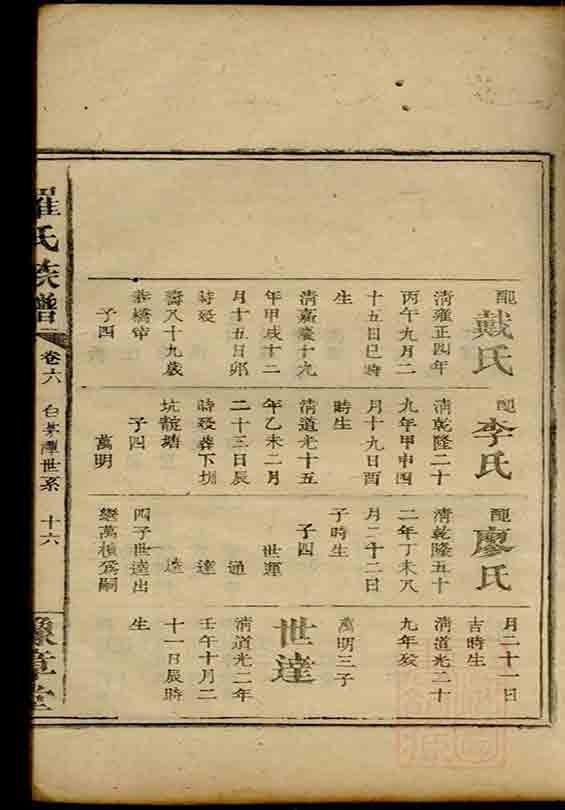 配戴氏
清雍正四年
丙午九月二
十五日巳時
生
清嘉慶十九
年甲戌十二
月十五日卯
時殁
壽八十九歲
子四
配李氏
清乾隆二十
九年甲申四
月十九日酉
時生
清道光十五
年乙未二月
二十三日辰
時殁葬下圳
坑龍塘
子四
萬明
配廖氏
清乾隆五十
二年丁未八
月二十二日
子時生
子四
世運
通
達
四子世達出
繼萬楨爲嗣
月二十一日
吉時生
清道光二十
九年殁
萬明三子
世達
清道光二年
壬午十月二
十一日辰時
生
羅氏族譜
卷六
世系
十六
豫章堂